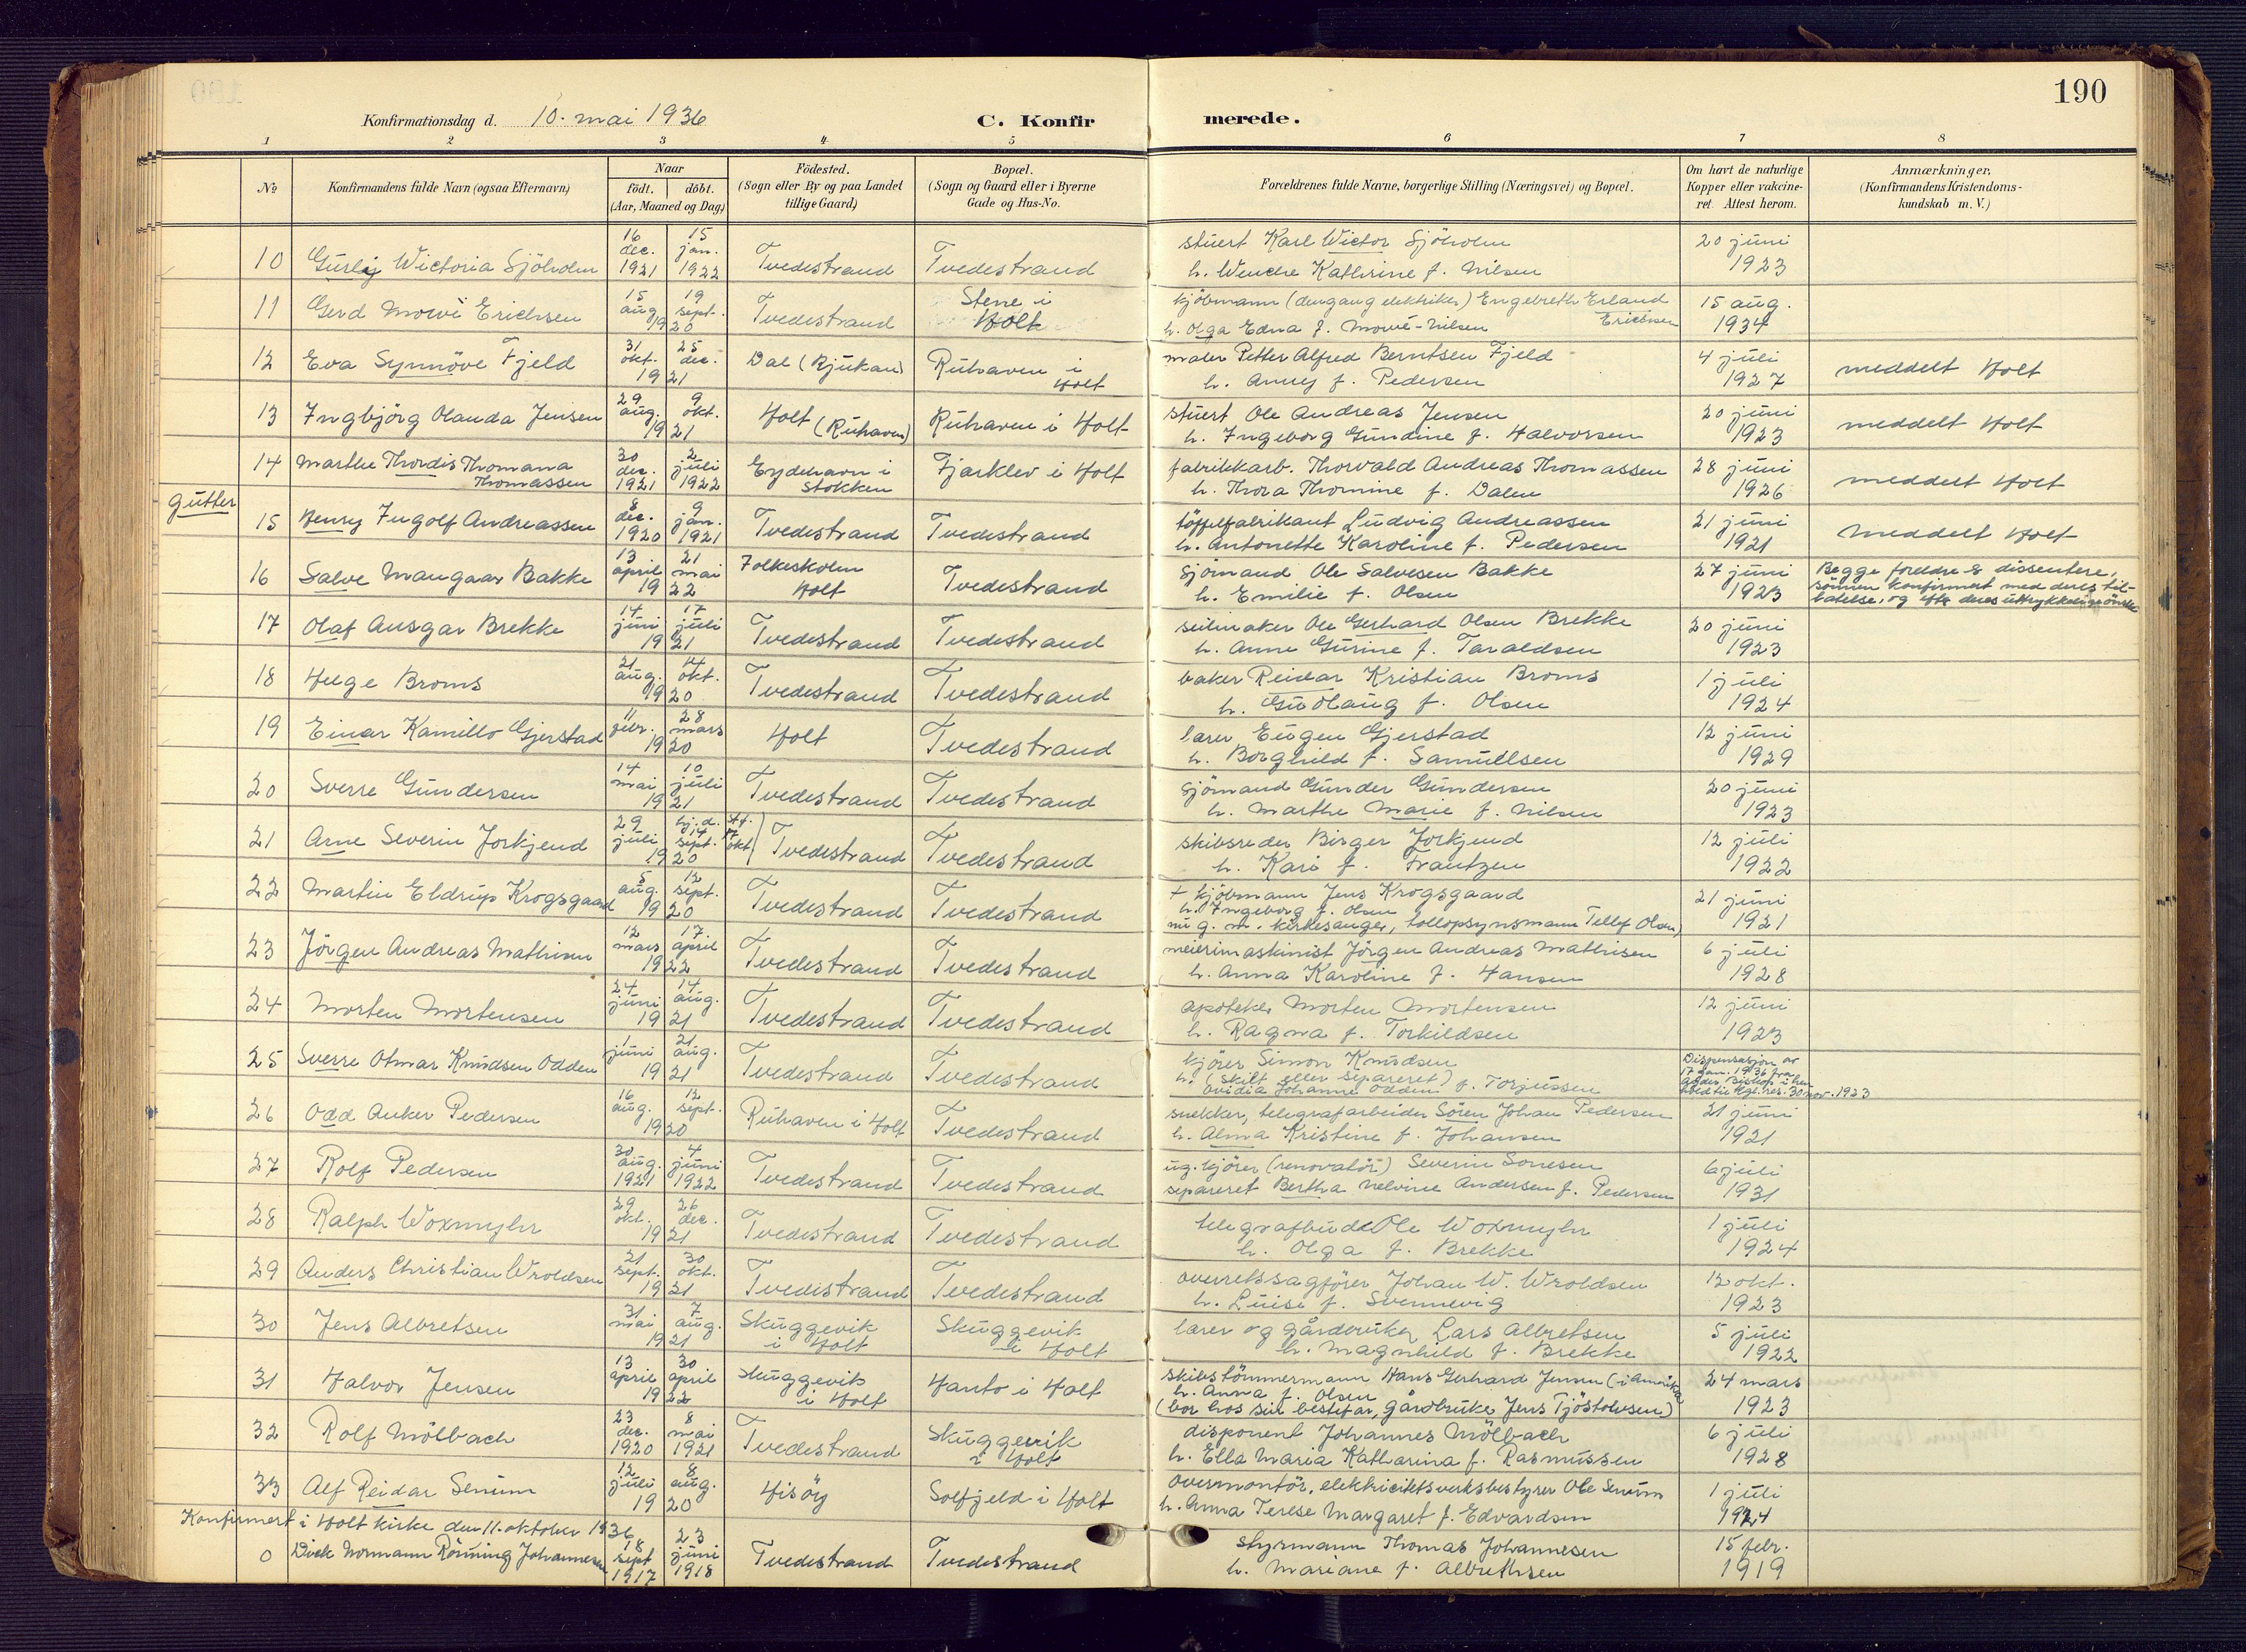 190
Konfirmationsdag d. 10. mai 1936
C. Konfir
merede.
1 2 3 4 5 6 7 8
№
Konfirmandens fulde Navn (ogsaa Efternavn)
Naar
födt. döbt.
(Aar, Maaned og Dag)
Födested.
(Sogn eller By og paa Landet
tillige Gaard)
Bopæl.
(Sogn og Gaard eller i Byerne
Gade og Hus-No.
Forældrenes fulde Navne, borgerlige Stilling (Næringsvei) og Bopæl.
Om havt de naturlige
Kopper eller vakcine-
ret. Attest herom.
Anmærkninger.
(Konfirmandens Kristendoms-
kundskab m. V.)
10 Gurly Wictoria Sjöholm 16 dec. 1921 15 jan. 1922 Tvedestrand Tvedestrand stuert Karl Wictor Sjöholm 20 juni 1923
h. Wenche Kathrine f. Nilsen
11 Gerd Mowi Erichsen 15 aug. 19 sept. 1920 Tvedestrand Stene i Holt kjöbmann (dengang elektriker) Engebreth Erland Erichsen 15 aug. 1934
h. Olga Edna f. Mowe-Nilsen
12 Eva Synnöve Fjeld 31 okt. 25 dec. 1921 Dal (Rjukan) Ruhaven i Holt maler Petter Alfred Berntsen Fjeld 4 juli 1927 meddelt Holt
h. Anny f. Pedersen
13 Ingbjörg Olanda Jensen 29 aug. 9 okt. 1921 Holt (Ruhaven) Ruhaven i Holt stuert Ole Andreas Jensen 20 juni 1923 meddelt Holt
h. Ingeborg Gundine f. Halvorsen
14 Marthe Thordis Thomana Thomassen 30 dec. 1921 2 juli 1922 Eydehavn i Stokken Fjarklev i Holt fabrikkarb. Thorvald Andreas Thomassen 28 juni 1926 meddelt Holt
h. Thora Thomine f. Dalen
gutter
15 Henry Ingolf Andreassen 8 dec. 1920 9 jan. 1921 Tvedestrand Tvedestrand töffelfabrikant Ludvig Andreassen 21 juni 1921 meddelt Holt
h. Antonette Karoline f. Pedersen
16 Salve Mangaar Bakke 13 april 21 mai 1922 Folkeskolen Holt Tvedestrand Sjömand Ole Salvesen Bakke 27 juni 1923 Begge foreldre er dissentere, sönnen konfirmert med deres tillatelse, og efter deres uttrykkelige önske
h. Emilie f. Olsen
17 Olaf Ansgar Brekke 14 juni 17 juli 1921 Tvedestrand Tvedestrand seilmaker Ole Gerhard Olsen Brekke 20 juni 1923
h. Anne Gurine f. Taraldsen
18 Helge Broms 21 aug. 14 okt. 1920 Tvedestrand Tvedestrand baker Reidar Kristian Broms 1 juli 1924
h. Gudlaug f. Olsen
19 Einar Kamillo Gjerstad 11 febr. 28 mars 1920 Holt Tvedestrand lærer Eugen Gjerstad 12 juni 1929
h. Borghild f. Samuelsen
20 Sverre Gundersen 14 mai 10 juli 1921 Tvedestrand Tvedestrand sjömand Gunder Gundersen 20 juni 1923
h. Marthe Marie f. Nilsen
21 Arne Severin Jorkjend 29 juli hj.d. 14 sept. 1920 st.f. 17 okt. Tvedestrand Tvedestrand skibsreder Birger Jorkjend 12 juli 1922
h. Kari f. Frantzen
22 Martin Eldrup Krogsgaard 5 aug. 12 sept. 1920 Tvedestrand Tvedestrand + kjöbmann Jens Krogsgaard 21 juni 1921
h. Ingeborg f. Olsen
nu g. m. kirkesanger, tollopsynsmann Tellef Olsen)
23 Jörgen Andreas Mathisen 12 mars 17 april 1922 Tvedestrand Tvedestrand meierimaskinist Jörgen Andreas Mathisen 6 juli 1928
h. Anna Karoline f. Hansen
24 Morten Mortensen 24 juni 14 aug. 1921 Tvedestrand Tvedestrand apoteker Morten Mortensen 12 juni 1923
h. Ragna f. Torkildsen
25 Sverre Otmar Knudsen Odden 1 juni 21 aug. 1921 Tvedestrand Tvedestrand kjörer Simon Knudsen Dispensasjon av 17 jan. 1936 fra Agder Biskop i henhold til kgl. res. 30 nov. 1923
h. (skilt eller separeret)
Ovidia Johanne Odden f. Torjussen
26 Odd Anker Pedersen 16 aug. 12 sept. 1920 Ruhaven i Holt Tvedestrand snekker, telegrafarbeider Sören Johan Pedersen 21 juni 1921
h. Alma Kristine f. Johansen
27 Rolf Pedersen 30 aug. 1921 4 juni 1922 Tvedestrand Tvedestrand ug. kjörer (renovatör) Severin Sonesen 6 juli 1931
separeret Bertha Nelvine Andersen f. Pedersen
28 Ralph Woxmyhr 29 okt. 26 dec. 1921 Tvedestrand Tvedestrand telegrafbud Ole Woxmyhr 1 juli 1924
h. Olga f. Brekke
29 Anders Christian Wroldsen 21 sept. 30 okt. 1921 Tvedestrand Tvedestrand overretssagförer Johan W. Wroldsen 12 okt. 1923
h. Luise f. Svennevig
30 Jens Albretsen 31. mai 7 aug. 1921 Skuggevik i Holt Skuggevik i Holt lærer og gårdbruker Lars Albretsen 5 juli 1922
h. Magnhild f. Brekke
31 Halvor Jensen 13 april 30 april 1922 Skuggevik i Holt Hanto i Holt skibstömmermann Hans Gerhard Jensen (i Amerika 24 mars 1923
h. Anna f. Olsen
(bor hos sin bestefar, gårdbruker Jens Tjöstolvsen)
32 Rolf Mölbach 23 dec. 1920 8 mai 1921 Tvedestrand Skuggevik i Holt disponent Johannes Mölbach 6 juli 1928
h. Ella Maria Katharina f. Rasmussen
33 Alf Reidar Senum 12 juli 8 aug. 1920 Hisöy Solfjeld i Holt overmontör, elektricitetsverksbestyrer Ole Senum 1 juli 1924
h. Anna Terese Margaret f. Edvardsen
Konfirmert i Holt kirke den 11. oktober 1936
0 Dick Normann Rönning Johannesen 18 sept 1917 23 juni 1918 Tvedestrand Tvedestrand styrmann Thomas Johannesen 15 febr. 1919
h. Mariane f. Albrethsen